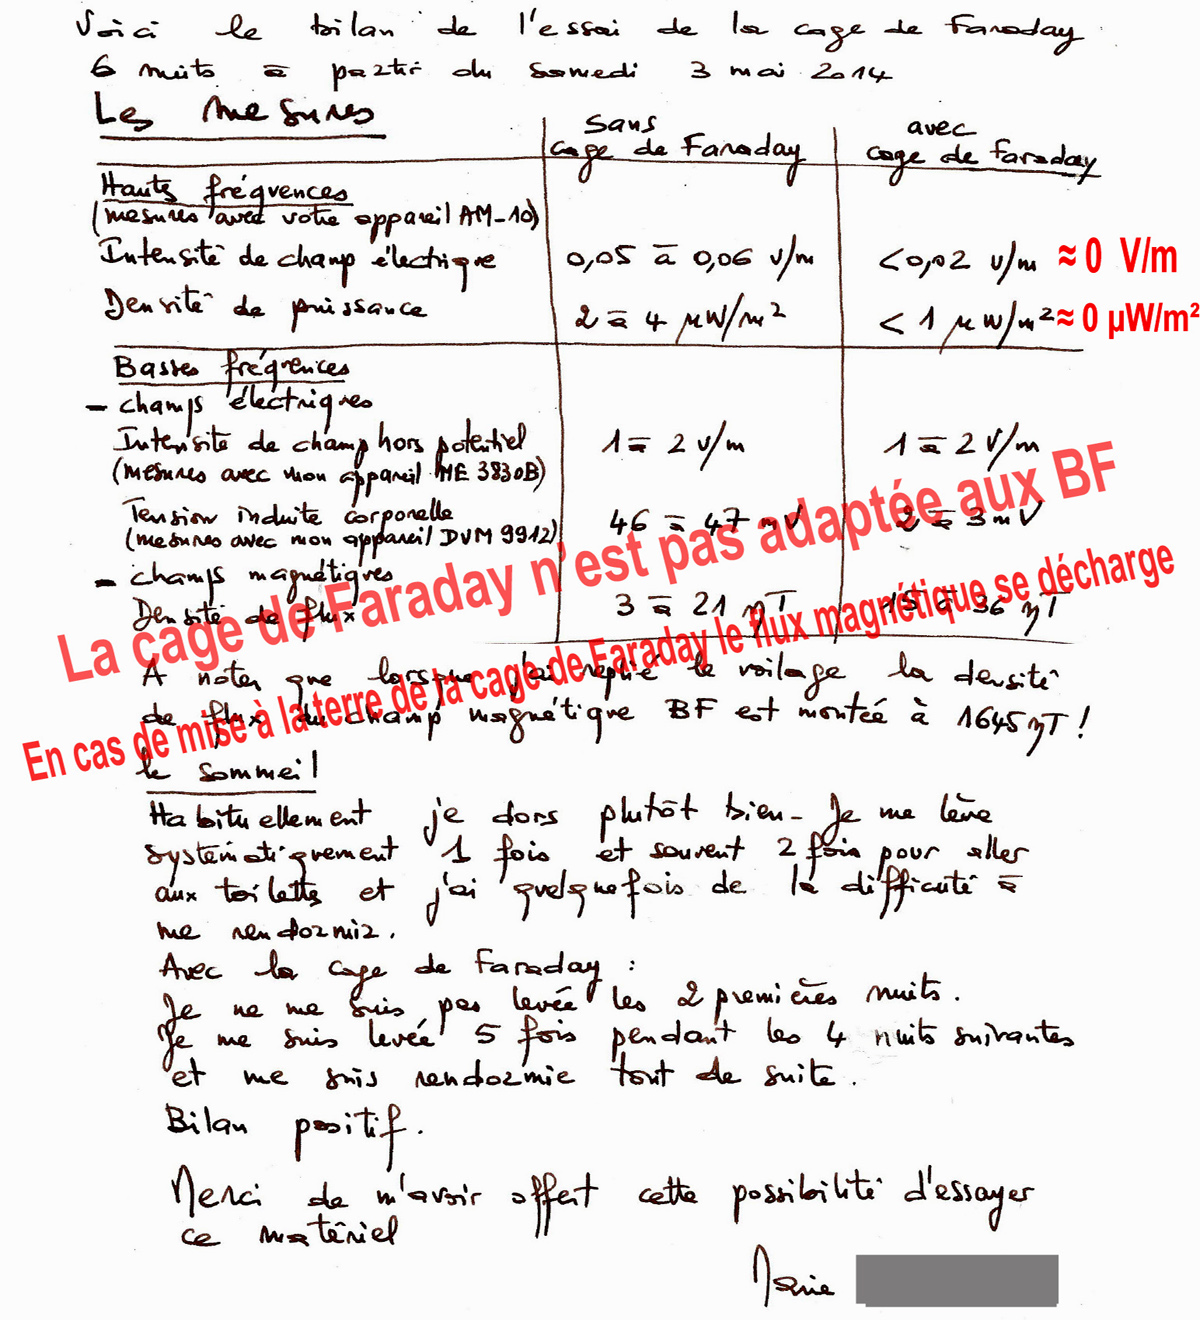 Voici le bilan de l'essai de la cage de Faraday
6 nuits à partir du samedi 3 mai 2014
Les mesures
sans cage de Faraday
avec cage de faraday
Hautes fréquences
(mesures avec votre appareil AM-10)
Intensité de champ électrique 0,05 à 0,06 v/m <0,02 v/m ≈ 0 V/m
Densité de puissance 2 à 4 µW/m² < 1 µW/m² ≈ 0 µW/m²
Basses fréquences
- champs électriques
Intensité de champ hors potentiel 1 à 2 v/m 1 à 2 V/m
(mesures avec mon appareil ME 3830B)
Tension induite corporelle 46 à 47 mV 2 à 3 mV
(mesures avec mon appareil DVM 9912)
- champs magnétiques
Densité de flux 3 à 21 ηT 15 à 36 ηT
La cage de Faraday n'est pas adaptée aux BF
En cas de mise à la terre de la cage de Faraday le flux magnétique se décharge
A noter que lorsque j'ai replié le voilage la densité
de flux du champ magnétique BF est montée à 1645 ηT !
le sommeil
Habituellement je dors plutôt bien - Je me lève
systématiquement 1 fois et souvent 2 fois pour aller
aux toilettes et j'ai quelquefois de la difficuté à
me rendormir.
Avec la cage de Faraday :
Je ne me suis pas levée les 2 premières nuits.
Je me suis levée 5 fois pendant les 4 nuits suivantes
et me suis rendormie tout de suite.
Bilan positif.
Merci de m'avoir offert cette possibilité d'essayer
ce matériel
Marie